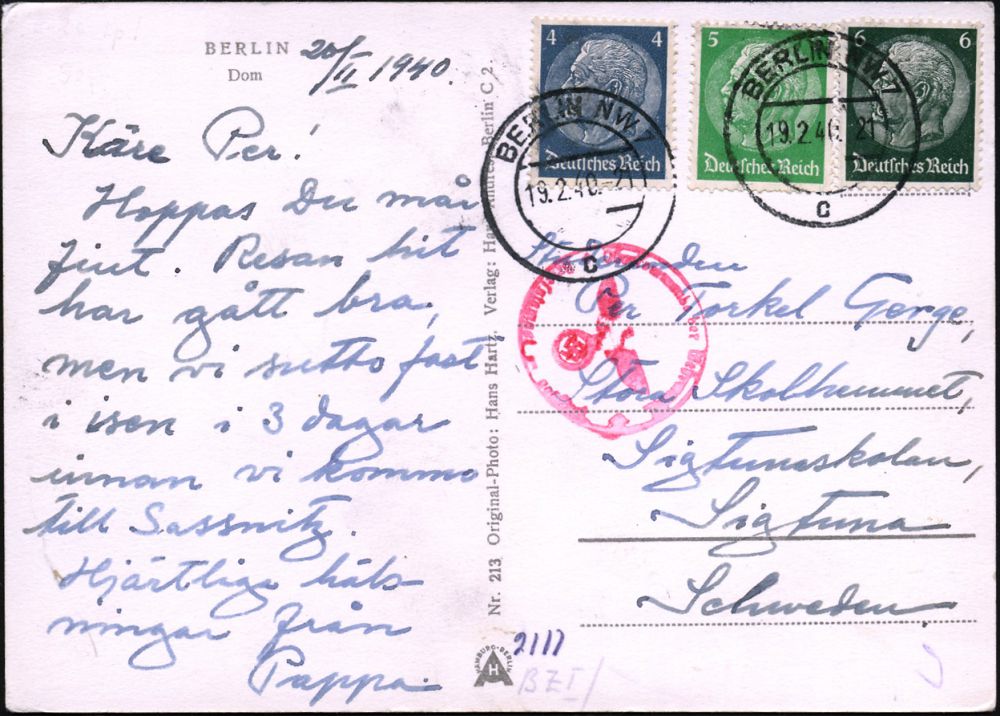 BERLIN
Dom
20/II 1940.
Käre Per!
Hoppas Du mår
fint. Resan hit
har gått bra,
men vi sutto fast
i isen i 3 dagar
innan vi kommo
till Sassnitz.
Hjärtliga häls-
ningar från
Pappa.
Nr. 213 Original-Photo: Hans Hartz, Verlag: Hans Andres, Berlin C 2.
HAMBURG-BERLIN
H
2111
BZI/
4
Deutsches Reich
5
Deutsches Reich
6
Deutsches Reich
BERLIN NW 7
19.2.40.-21
c
BERLIN NW 7
19.2.40.-21
c
Studeranden
Per Torkel Gerge,
Stora Skolhemmet,
Sigtunaskolan,
Sigtuna
Schweden